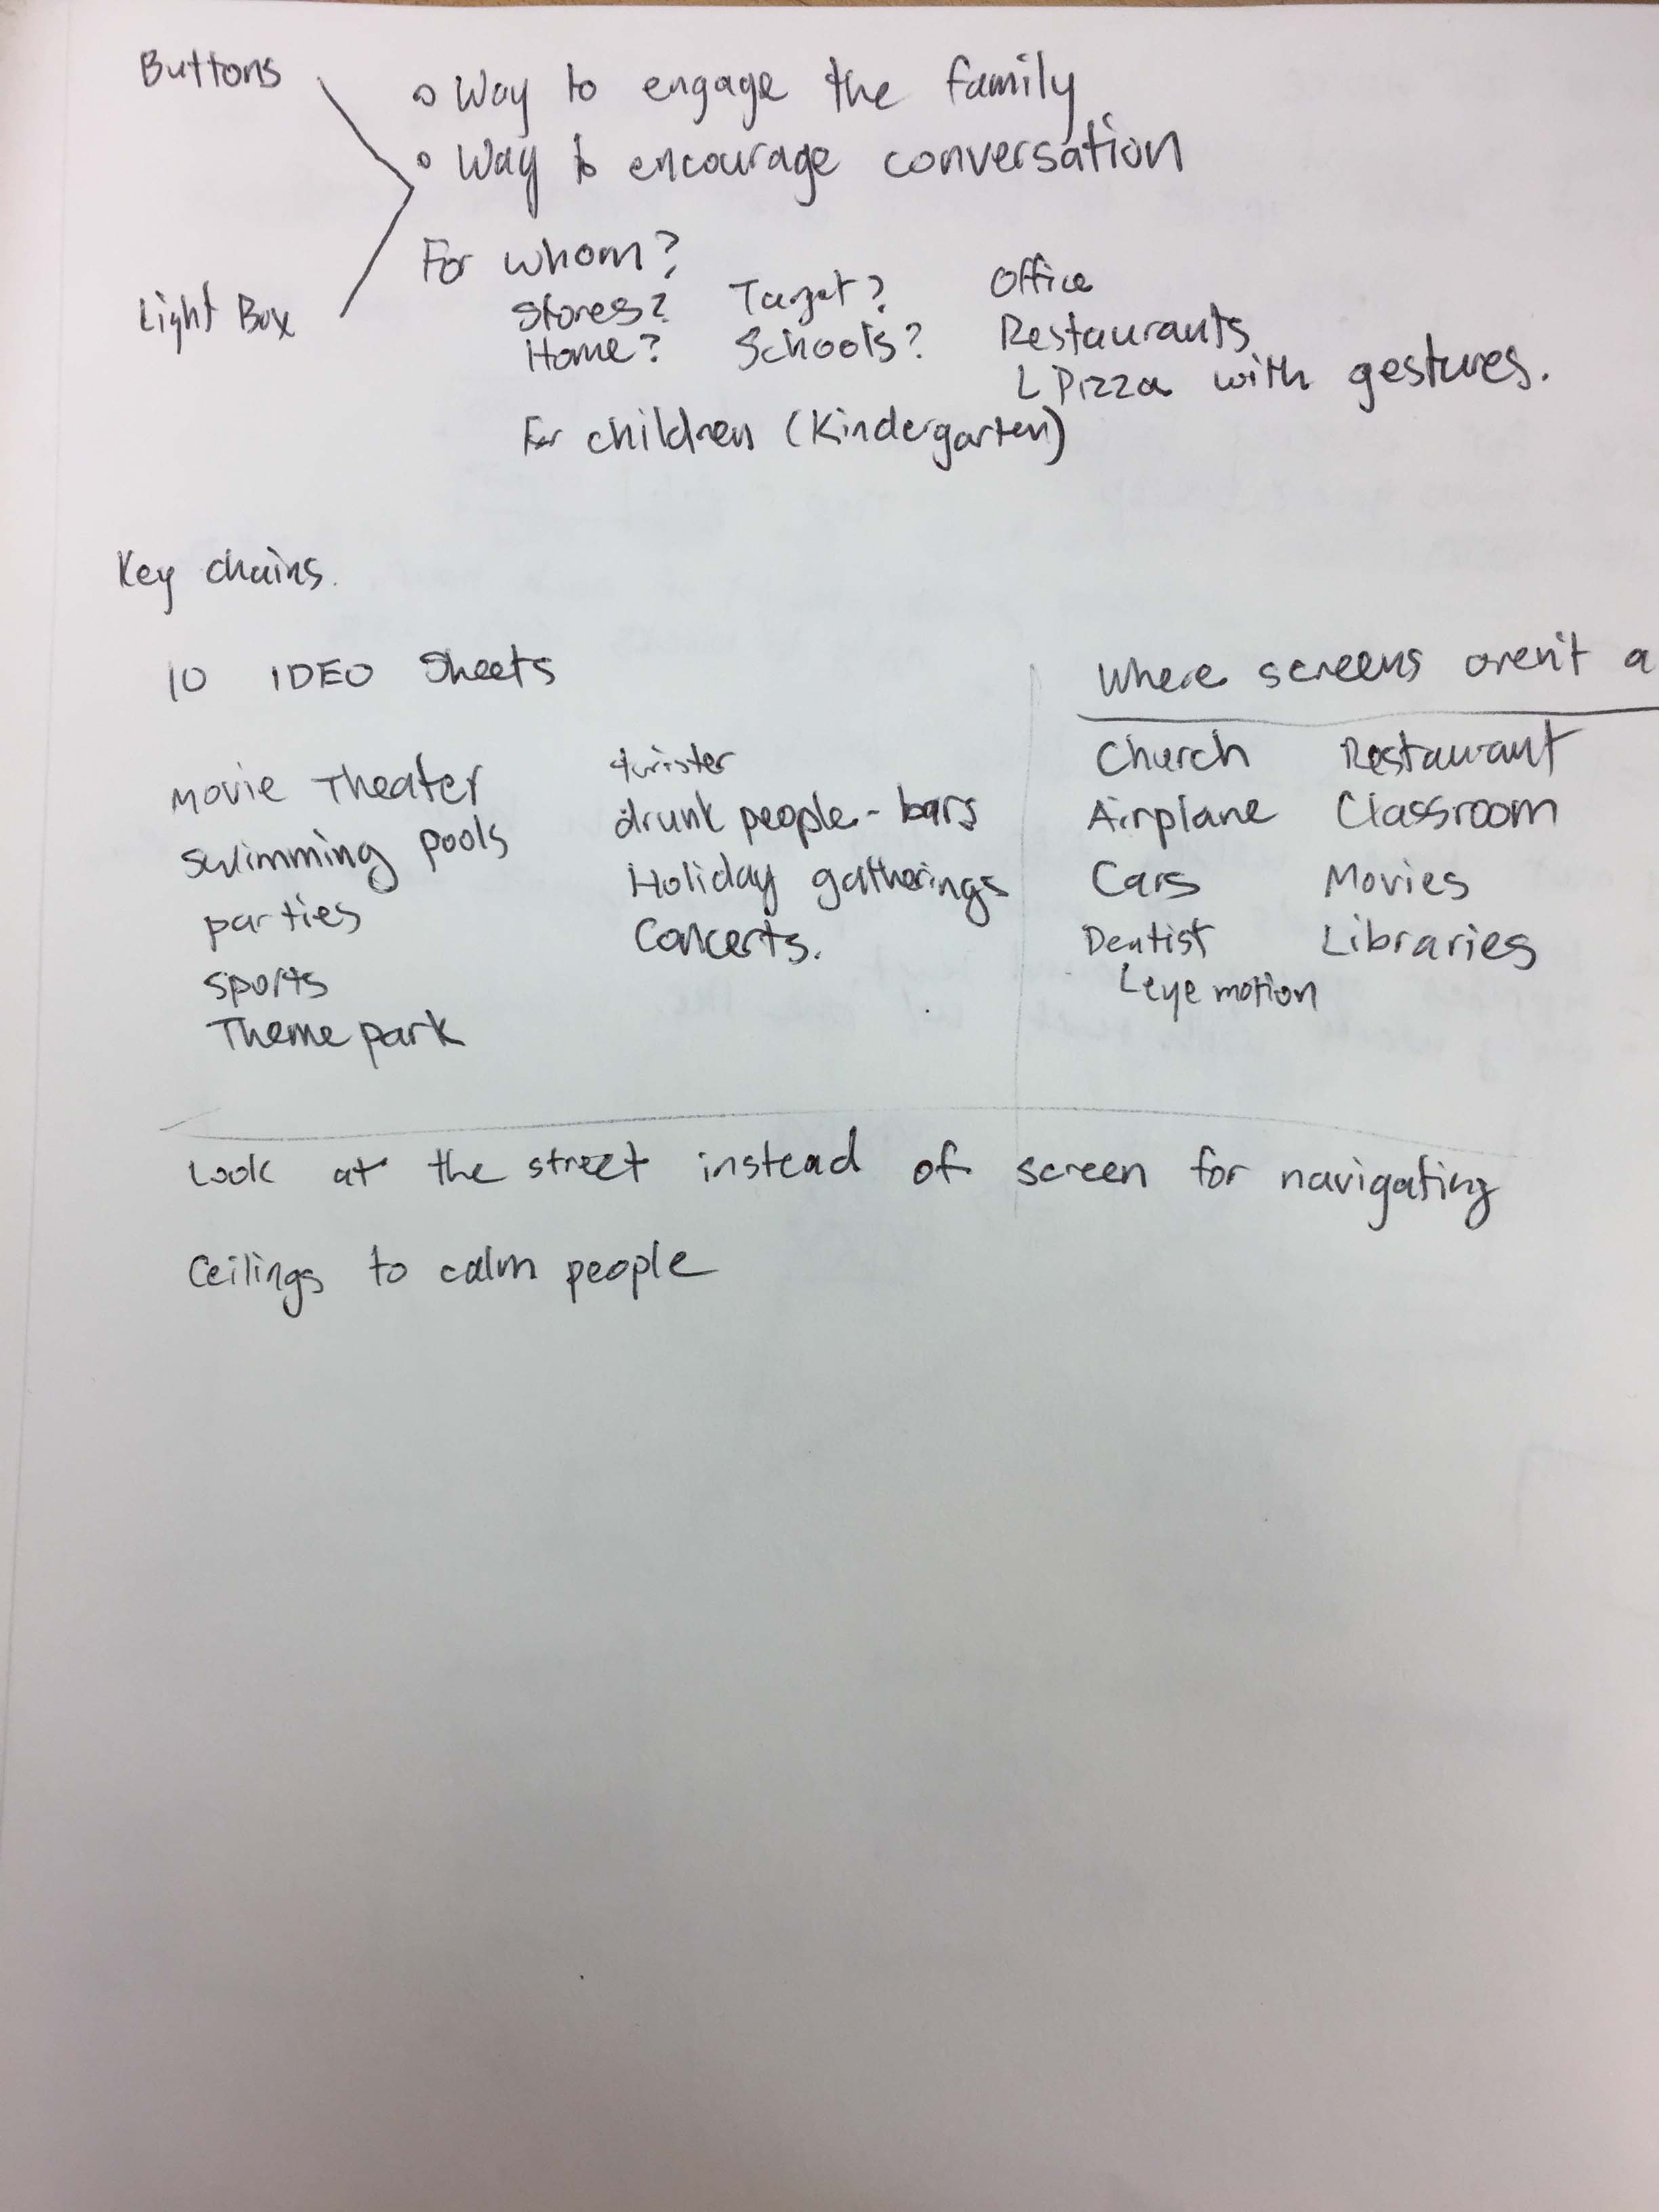 Buttons
o Way to engage the family
o Way to encourage conversation
For whom?
Light Box
Stores? Target? Office
Home? Schools? Restaurants
L Pizza with gestures.
For children (Kindergarten)
Key chains.
10 IDEO Sheets
Movie Theater
swimming pools
parties
sports
Theme park
twister
drunk people - bars
Holiday gatherings
Concerts.
Where screens aren't a
Church Restaurant
Airplane Classroom
Cars Movies
Dentist Libraries
L eye motion
Look at the street instead of screen for navigating
Ceilings to calm people